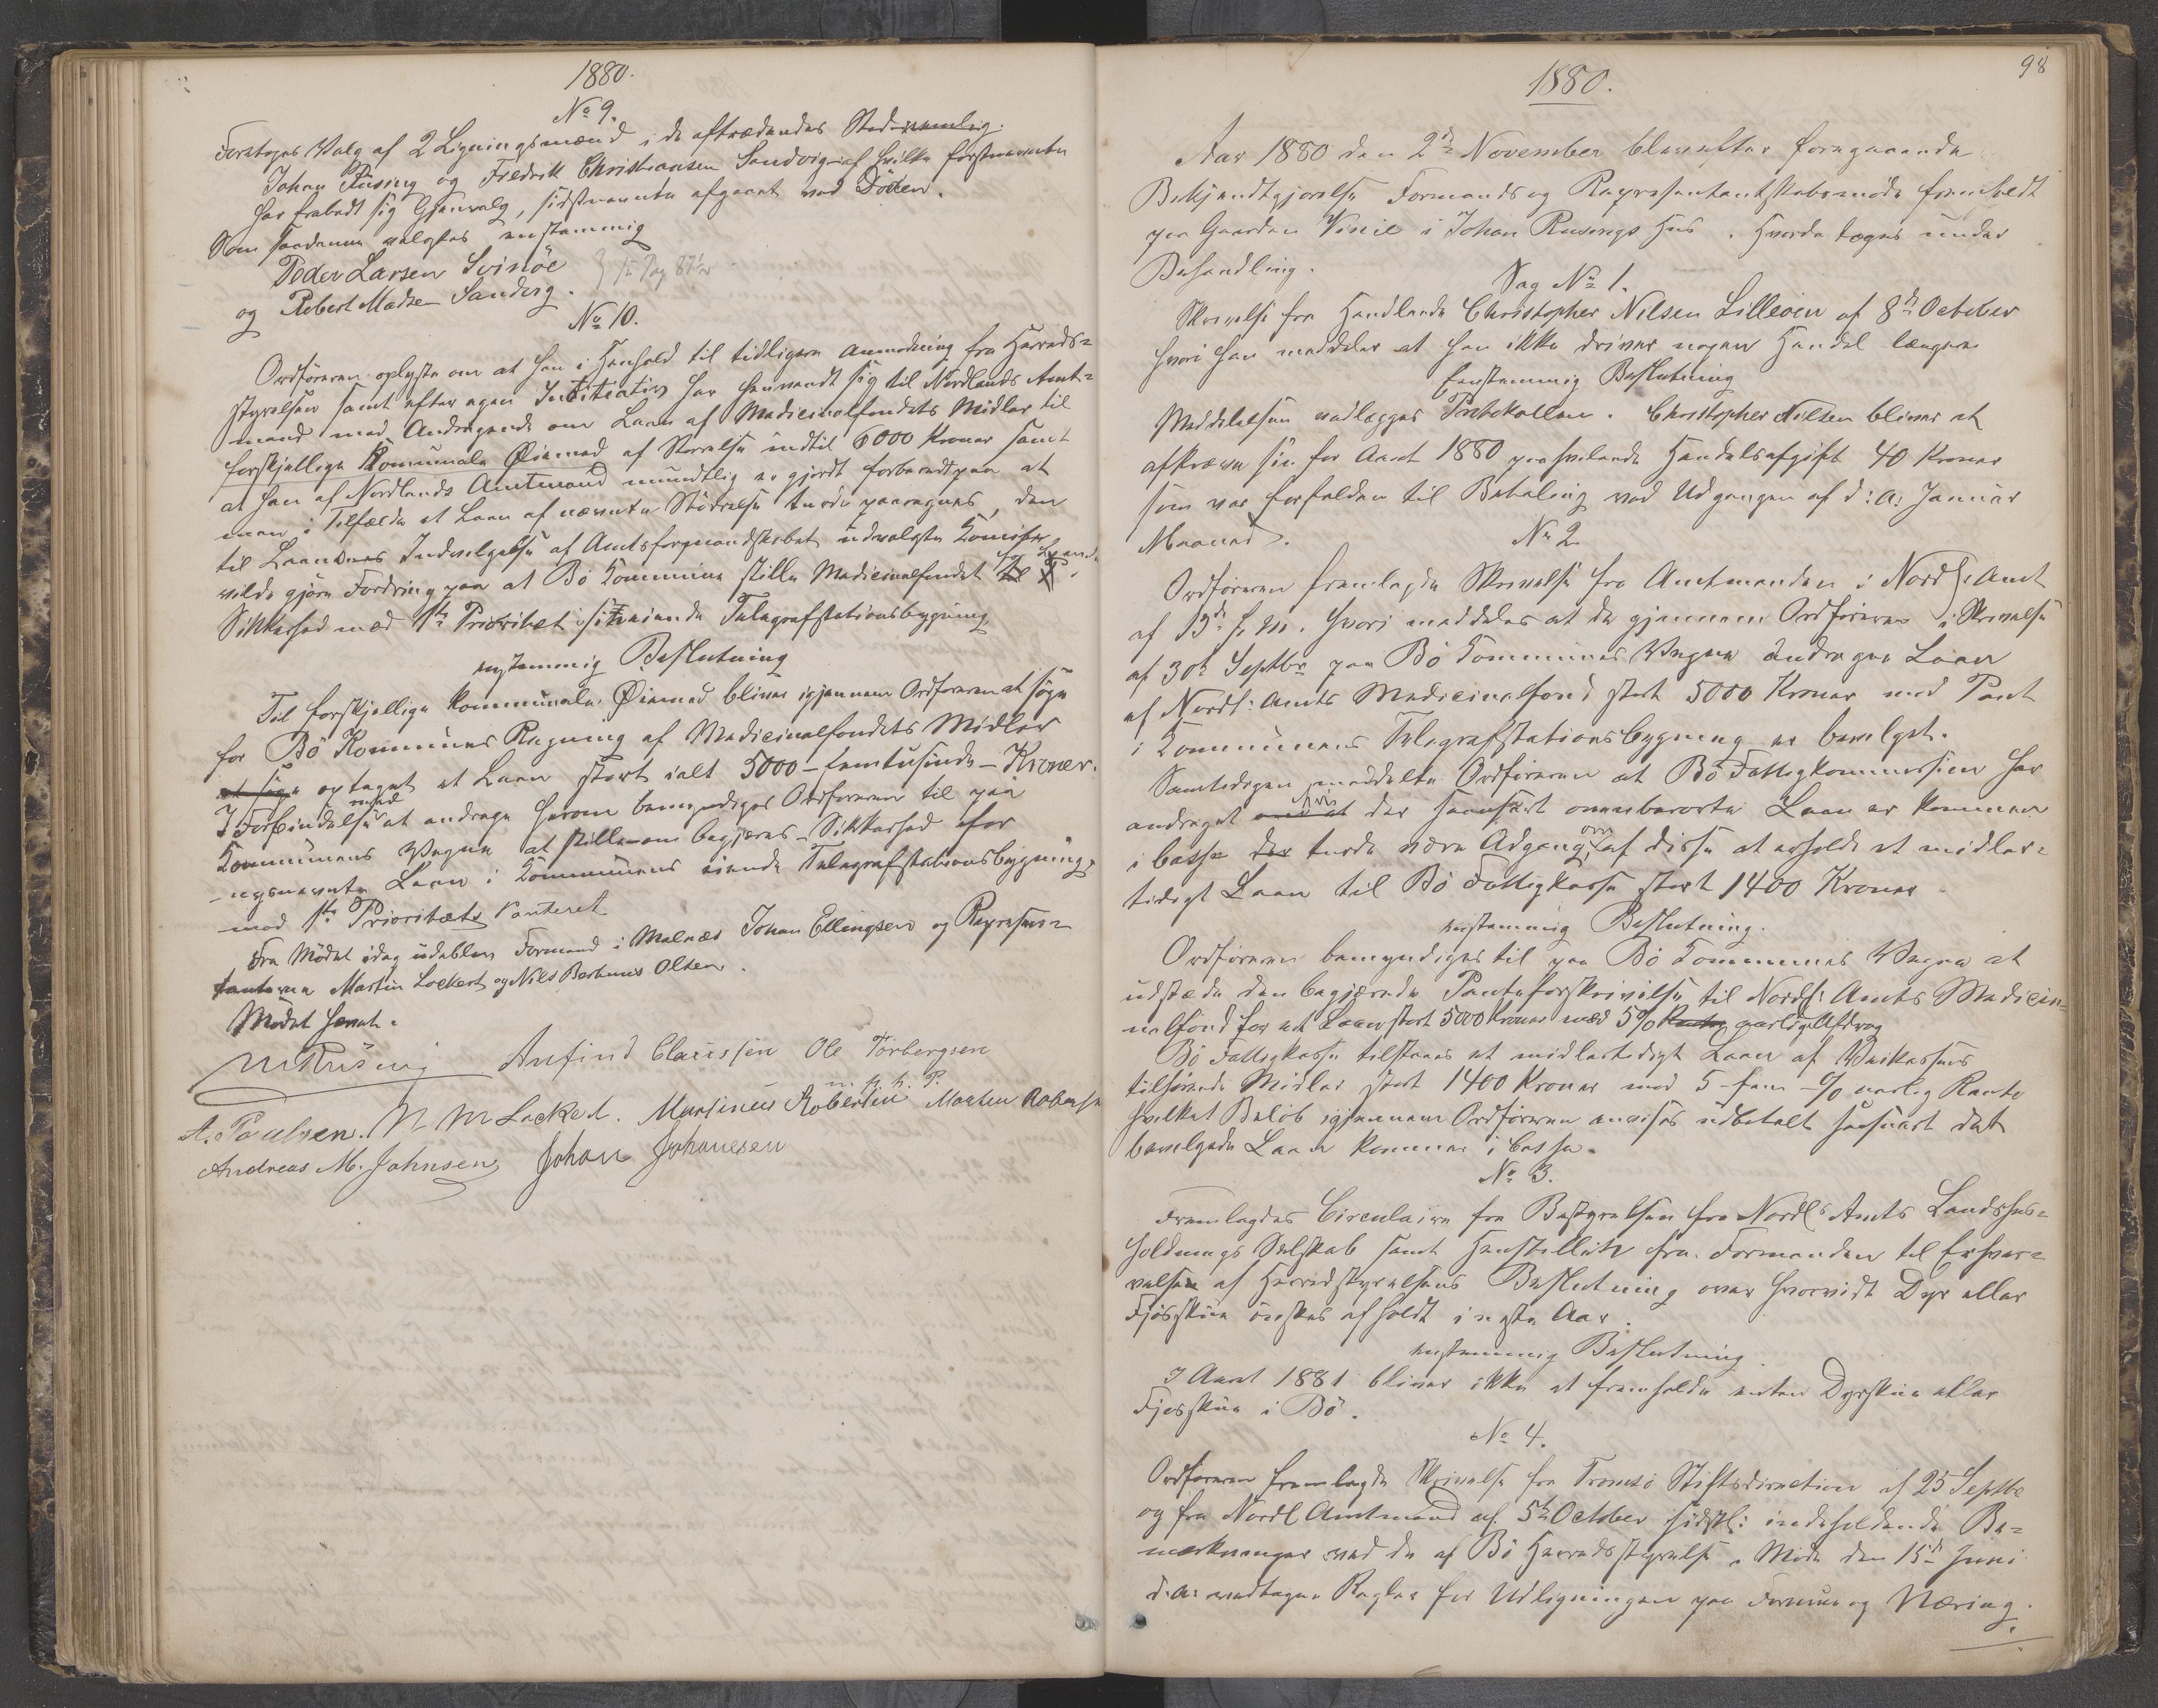 1880.
No 9.
Foretoges Valg af 2 Ligningsmænd i de aftrædendes Sted nemlig
Johan Rüsing og Fredrik Christiansen Sandvig af hvilke førstnævnte
har frabedt sig Gjenvalg, sidstnævnte afgaaet ved Döden.
Som saadanne valgtes enstemmig
Peder Larsen Svinöe
og Robert Madsen Sandvig.
No 10.
Ordföreren oplyste om at han i Henhold til tidligere Anmodning fra Herreds=
styrelsen samt efter egen Initiativ har henvendt sig til Nordlands Amt=
mand med Andragende om Laan af Medicinalfondets Midler til
forskjellige Kommunale Øiemed af Størrelse indtil 6000 Kroner samt
at han af Nordlands Amtmand mundtlig er gjordt forberedt paa at
man i Tilfælde et Laan af nævnte Størrelse turde paaregnes, den
til Laanenes Indvilgelse af Amtsformandskabet udvalgte Komite
vilde gjøre Fordring paa at Bö Kommune stille Medicinalfondet
Sikkerhed med 1ste Prioritet i sit eiende Telegrafstationsbygning
enstemmig Beslutning
Til forskjellige kommunale Øiemed bliver igjennem Ordføreren at søge
for Bö Kommunes Regning af Medicinalfondets Midler
at søge optaget et Laan stort ialt 5000 – femtusinde – Kroner.
I Forbindelse med at andrage herom bemyndiges Ordføreren til paa
Kommunens Vegne at stille om begjæres – Sikkerhed for
nysnævnte Laan i Kommunens eiende Telegrafstationsbygning
med 1ste Prioritets Panteret
Fra Mödet idag udeblev Formand i Malnæs Johan Ellingsen og Repræsen=
tanterne Martin Lockert og Nils Berteus Olsen.
Mödet hævet.
M Rüsing Anfind Clausjen Ole Torbergsen
m. p. P.
A. Paulsen. N M Lockert. Martinus Robertsen Morten Roberts
Andreas M. Johnsen Johan Johannesen
98
1880.
Aar 1880 den 2de November blev efter foregaaende
Bekjendtgjørelse Formands og Repræsentantskabsmøde fremholdt
paa Gaarden Vinie i Johan Rusings Hus. Hvorda toges under
Behandling.
Sag No 1.
Skrivelse fra Handlende Christopher Nilsen Lilleöen af 8de October
hvori han meddeler at han ikke driver nogen Handel længere
Eenstemmig Beslutning
Meddelelsen vedlægges Protokollen. Christopher Nilsen bliver at
afkræve sin for Aaret 1880 paahvilende Handelsafgift 40 Kroner
som var forfalden til Betaling ved Udgangen af d: A: Januar
Maaned.
No 2
Ordføreren fremlagde Skrivelse fra Amtmanden i Nordl: Amt
af 13de f. M. hvori meddeles at de gjennem Ordføreren i Skrivelse
af 30te Septbr paa Bö Kommunes Vegne andragne Laan
af Nordl: Amts Medicinalfond stort 5000 Kroner mod Pant
i Kommunens Telegrafstationsbygning er bevilget.
Samtidigen meddelte Ordføreren at Bö Fattigkommission har
andraget om at der saasnart ommeberørte Laan er kommen
i Cassa der turde være Adgang om af disse at erholde et midler=
tidigt Laan til Bö Fattigkasse stort 1400 Kroner
enstemmig Beslutning.
Ordføreren bemyndiges til paa Bö Kommunes Vegne at
udstæde den begjærede Panteforskrivelse til Nordl: Amts Medicin=
nalfond for et Laan stort 5000 Kroner med 5% Rente aarlige Afdrag
Bö Fattigkasse tilstaaes et midlertidigt Laan af Veikassens
tilhørende Midler stort 1400 Kroner mod 5 – fem – % aarlig Rente
hvilket Beløb igjennem Ordføreren anvises udbetalt saasnart det
bevilgede Laan kommer i Cassa.
No 3.
Fremlagdes Circulaire fra Bestyrelsen fra Nordls Amts Landhus=
holdnings Selskab samt Henstillen fra Formanden til Erhver=
velsen af Herredstyrelsens Beslutning over hvorvidt Dyr eller
Fjøsskue önskes afholdt i næste Aar.
enstemmig Beslutning.
I Aaret 1881 bliver ikke at fremholde enten Dyrskue eller
Fjøsskue i Bö.
No 4.
Ordføreren fremlagde Skrivelse fra Tromsö Stiftsdirection af 25 Septbr
og fra Nordl Amtmand af 5te October sidstl: indeholdende Be=
mærkninger ved de af Bö Herredsstyrelse i Møde den 15de Juni
d: A: vedtagne Regler for Udligningen paa Formue og Næring.